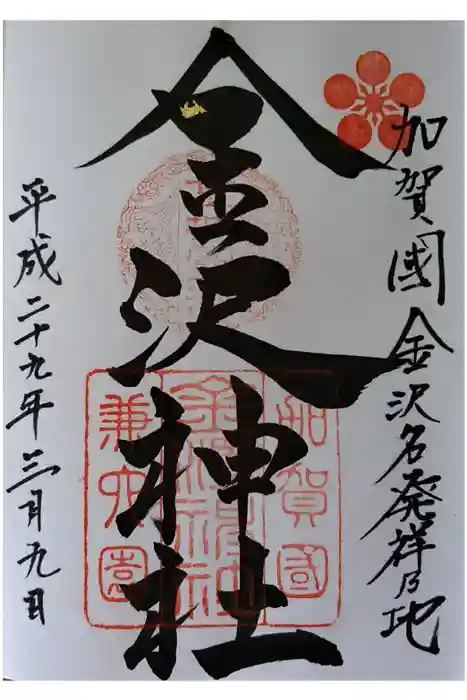 加賀國金沢名発祥乃地
金沢神社
平成二十九年三月九日
加賀國
金澤神社
兼六園